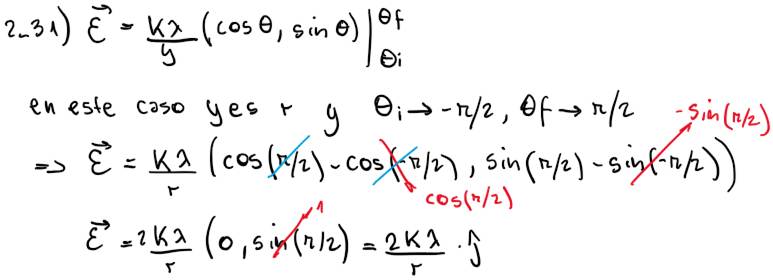 2_31) $\vec{\mathcal{E}} = \frac{K\lambda}{y} (\cos\theta, \sin\theta) \Big|_{\theta i}^{\theta f}$
en este caso y es r y θi → -π/2, θf → π/2
-sin(π/2)
=> $\vec{\mathcal{E}} = \frac{K\lambda}{r} (\cos(π/2) - \cos(-π/2), \sin(π/2) - \sin(-π/2))$
cos(π/2)
1
$\vec{\mathcal{E}} = \frac{2K\lambda}{r} (0, \sin(π/2) = \frac{2K\lambda}{r} \cdot \hat{j}$